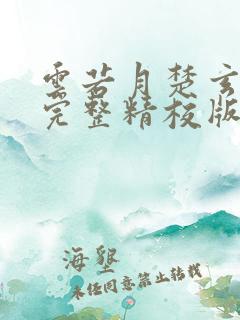 云若月楚玄
完整精校版
海壂
未经同意禁止转载